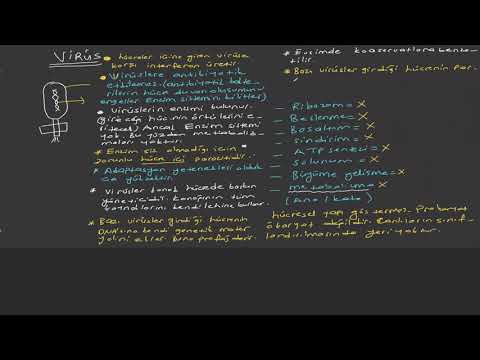 VİRÜS
• hücreler içine giren virüse
karşı interferon üretir.
• Virüslere antibiyotik
etkilemez. (antibiyotik bakte-
rilerin hücre duvarı oluşumunu
engeller Enzim sistemini kilitler)
• Virüslerin enzimi bulunur.
(gireceği hücrenin örtülerini e-
ritecek) Ancak Enzim sistemi
yok. Bu yüzden metaboliz-
maları yoktur.
• Enzim elt olmadığı için
zorunlu hücre içi parazitidir.
• Adaptasyon yetenekleri olduk
ça yüksektir.
• Virüsler konak hücrede baskın
yöneticidir. Konağının tüm
kaynaklarını kendi lehine kullanır.
• Bazı virüsler girdiği hücrenin
DNA'sına kendi genetik mater
yalini ekler. Buna profaj denir.
• Evrimde koaservatlara benze-
tilir.
• Bazı virüsler girdiği hücrenin par-
- Ribozom = X
- Beslenme = X
- Boşaltım = X
- sindirim = X
- ATP sentezi = X
- solunum = X
- Büyüme gelişme = X
- metabolizma = X
(Ana | kata)
hücresel yapı göstermez. Prokaryot
ökaryot değildir. Canlıların sınıf-
landırılmasında yeri yoktur.